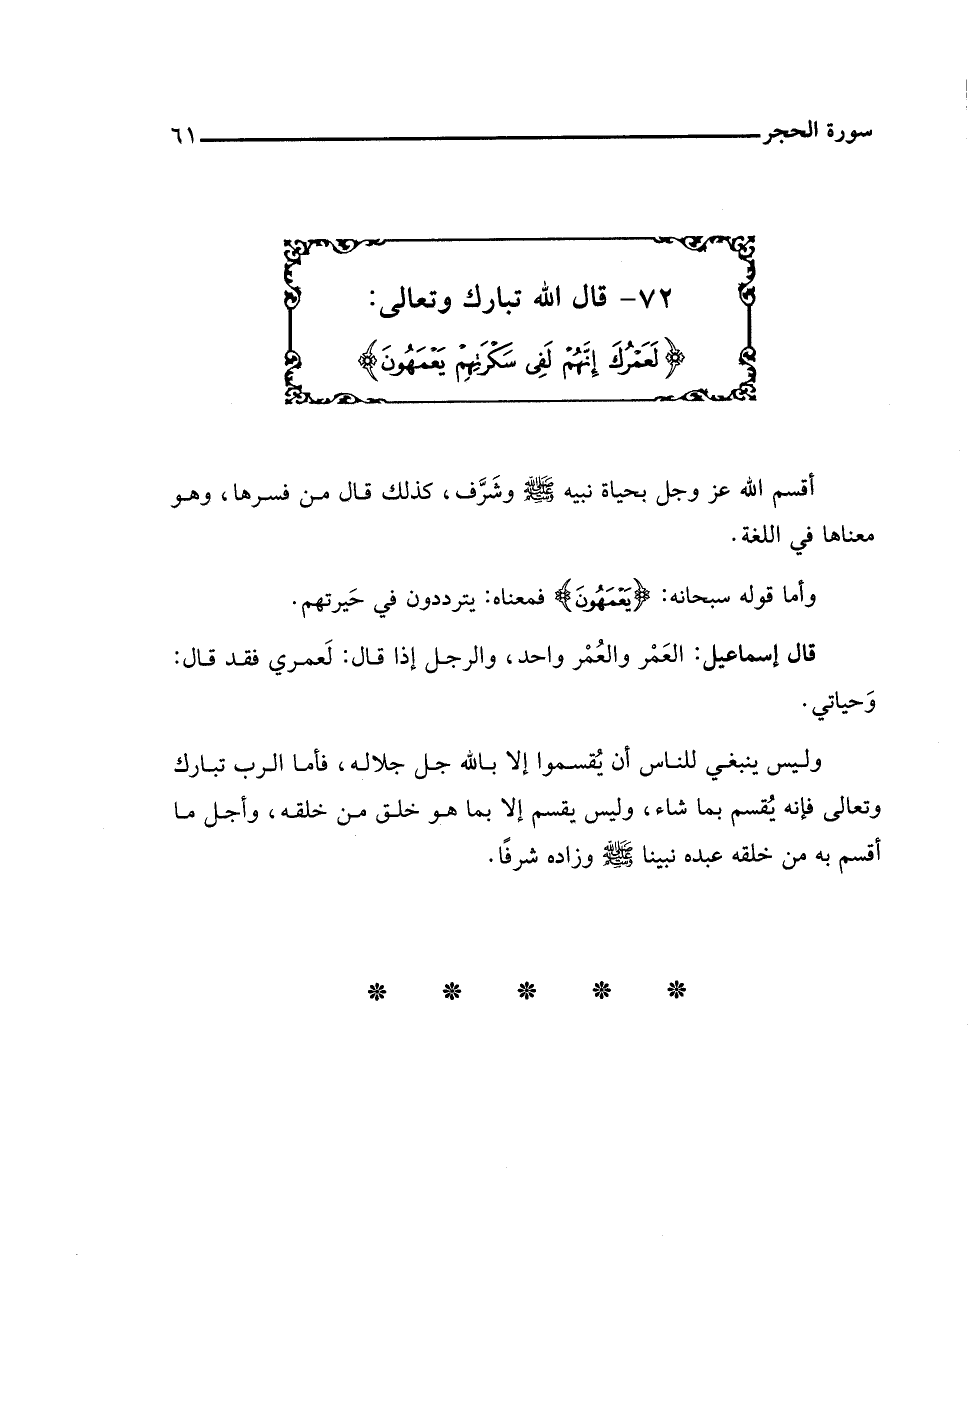 سورة الحجر ٦١
٧٢- قال الله تبارك وتعالى:
﴿لَعَمْرُكَ إِنَّهُمْ لَفِى سَكْرَتِهِمْ يَعْمَهُونَ﴾
أقسم الله عز وجل بحياة نبيه ﷺ وشَرَّف، كذلك قال من فسرها، وهو
معناها في اللغة.
وأما قوله سبحانه: ﴿يَعْمَهُونَ﴾ فمعناه: يترددون في حَيرتهم.
قال إسماعيل: العَمْر والعُمْر واحد، والرجل إذا قال: لَعمري فقد قال:
وَحياتي.
وليس ينبغي للناس أن يُقسموا إلا بالله جل جلاله، فأما الرب تبارك
وتعالى فإنه يُقسم بما شاء، وليس يقسم إلا بما هو خلق من خلقه، وأجل ما
أقسم به من خلقه عبده نبينا ﷺ وزاده شرفًا.